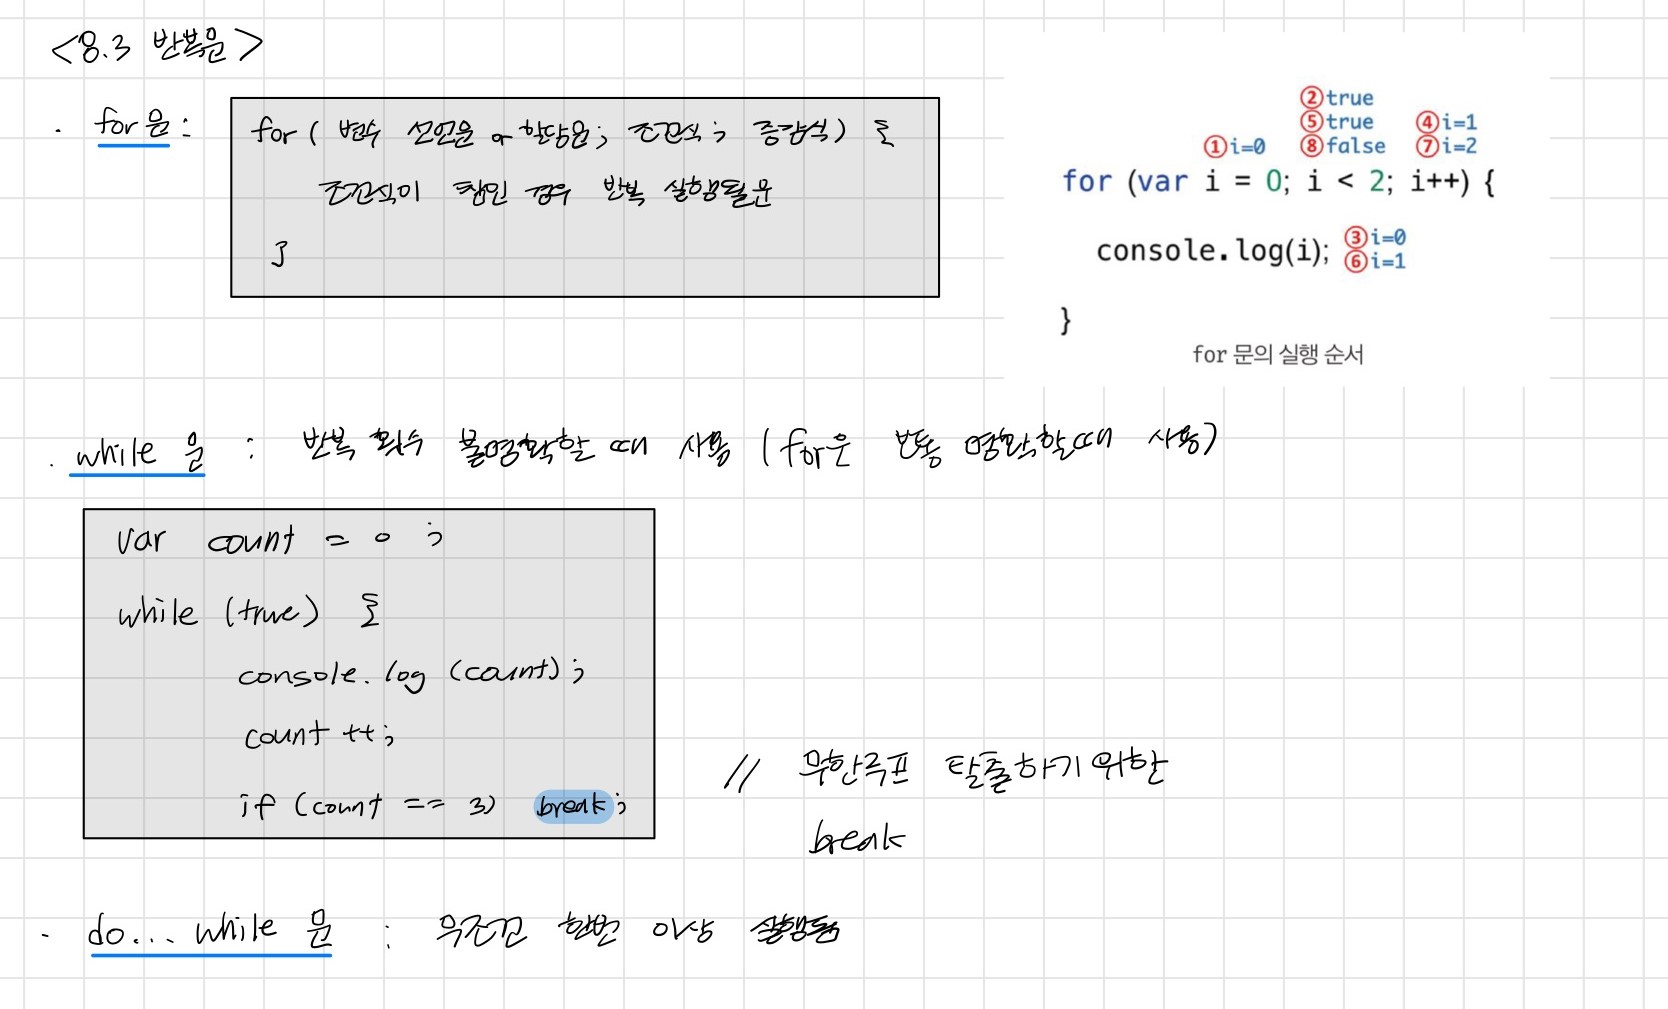 <8.3 반복문>
· for문 :
for ( 변수 선언문 or 할당문; 조건식; 증감식) {
조건식이 참인 경우 반복 실행될문
}
②true
⑤true ④i=1
①i=0 ⑧false ⑦i=2
for (var i = 0; i < 2; i++) {
③i=0
console.log(i);
⑥i=1
}
for 문의 실행 순서
· while 문 : 반복 횟수 불명확할 때 사용 (for은 보통 명확할때 사용)
var count = 0 ;
while (true) {
console.log (count);
count ++;
if (count == 3) break;
// 무한루프 탈출하기 위한
break
· do... while 문 : 무조건 한번 이상 실행됨